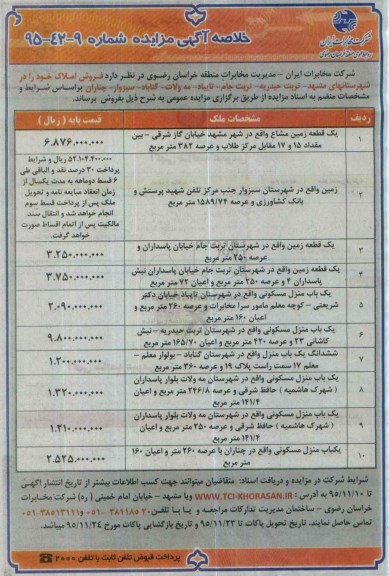 خلاصه آگهی مزایده شماره ۹-۴۲-۹۵
شرکت مخابرات ایران
شرکت مخابرات ایران - مدیریت مخابرات منطقه خراسان رضوی در نظر دارد فروش املاک خود را در
شهرستانهای مشهد- تربت حیدریه- تربت جام- تایباد- مه ولات- گناباد- سبزوار- چناران براساس شرایط و
مشخصات منضم به اسناد مزایده از طریق برگزاری مزایده عمومی به شرح ذیل بفروش برساند.
ردیف
مشخصات ملک
قیمت پایه ( ریال )
۱
یک قطعه زمین مشاع واقع در شهر مشهد خیابان گاز شرقی - بین
مقداد ۱۵ و ۱۷ مقابل مرکز طلاب و عرصه ۳۸۲ متر مربع
۶.۸۷۶.۰۰۰.۰۰۰
۲
زمین واقع در شهرستان سبزوار جنب مرکز تلفن شهید پرستش و
بانک کشاورزی و عرصه ۱۵۸۹/۷۴ مترمربع
۵۲.۱۰۴.۴۰۰.۰۰۰ ریال و شرایط
پرداخت ۳۰ درصد نقد و الباقی طی
۶ قسط دوماهه به مدت یکسال از
زمان انعقاد مبایعه نامه و تحویل
ملک پس از پرداخت قسط سوم
انجام خواهد شد و انتقال سند
مالکیت پس از اتمام اقساط صورت
خواهد گرفت.
۳
یک قطعه زمین واقع در شهرستان تربت جام خیابان پاسداران و
عرصه ۲۵۰ متر مربع
۳.۲۵۰.۰۰۰.۰۰۰
۴
یک قطعه زمین واقع در شهرستان تربت جام خیابان پاسداران نبش
پاسداران ۴ و عرصه ۲۵۰ متر مربع و اعیان ۷۲ متر مربع
۳.۷۵۰.۰۰۰.۰۰۰
۵
یک باب منزل مسکونی واقع در شهرستان تایباد خیابان دکتر
شریعتی - کوچه معلم مامور سرا مخابرات و عرصه ۲۶۰ متر مربع و
اعیان ۱۶۰ متر مربع
۲.۰۹۰.۰۰۰.۰۰۰
۶
یک باب منزل مسکونی واقع در شهرستان تربت حیدریه - نبش
کاشانی ۲۳ و عرصه ۴۲۰ متر مربع و اعیان ۱۶۵/۷۰ متر مربع
۹.۸۰۰.۰۰۰.۰۰۰
۷
ششدانگ یک باب منزل واقع در شهرستان گناباد - بولوار معلم -
معلم ۱۷ سمت راست پلاک ۱۹ و عرصه ۳۶۰ متر مربع
۱.۲۰۰.۰۰۰.۰۰۰
۸
یک باب منزل مسکونی واقع در شهرستان مه ولات بلوار پاسداران
( شهرک هاشمیه ) حافظ شرقی و عرصه ۲۴۶/۸ متر مربع و اعیان
۱۴۱/۴ متر مربع
۱.۳۲۰.۰۰۰.۰۰۰
۹
یک باب منزل مسکونی واقع در شهرستان مه ولات بلوار پاسداران
( شهرک هاشمیه ) حافظ شرقی و عرصه ۲۵۰ متر مربع و اعیان
۱۴۱/۴ متر مربع
۱.۲۱۰.۰۰۰.۰۰۰
۱۰
یکباب منزل مسکونی واقع در چناران با عرصه ۲۶۰ متر و اعیان ۱۶۰
متر مکعب
۲.۵۲۵.۰۰۰.۰۰۰
شرایط شرکت در مزایده و دریافت اسناد: متقاضیان میتوانند جهت کسب اطلاعات بیشتر از تاریخ انتشار آگهی
تا ۹۵/۱۱/۱۰ به آدرس : WWW.TCI-KHORASAN.IR ویا مشهد - خیابان امام خمینی ( ره) شرکت مخابرات
خراسان رضوی - ساختمان مدیریت تدارکات مراجعه و یا با تلفن ۲۰ ۳۸۱۱۸۵-۰۵۱ و ۳۸۵۱۳۱۱۱-۰۵۱
تماس حاصل نمایند. تاریخ تحویل پاکات تا ۹۵/۱۱/۲۳ و تاریخ بازگشایی پاکات مورخ ۹۵/۱۱/۲۴ میباشد.
پرداخت قبوض تلفن ثابت با تلفن ۲۰۰۰